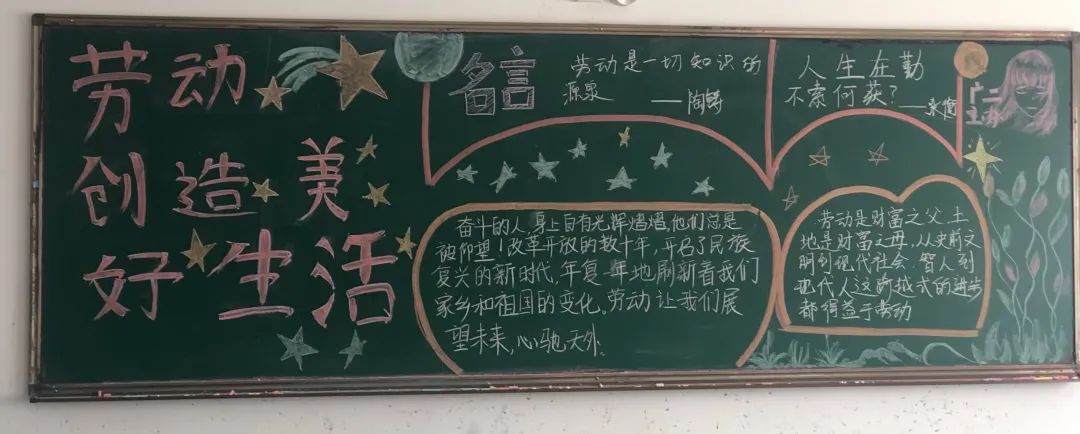 劳动
创造美
好生活
名言
劳动是一切知识的
源泉
——陶铸
人生在勤
不索何获?——张衡
奋斗的人,身上自有光辉熠熠,他们总是
被仰望!改革开放的数十年,开启了民族
复兴的新时代,年复一年地刷新着我们
家乡和祖国的变化。劳动让我们展
望未来,心驰天外。
劳动是财富之父,土
地是财富之母,从史前文
明到现代社会,智人到
现代人这跨越式的进步
都得益于劳动